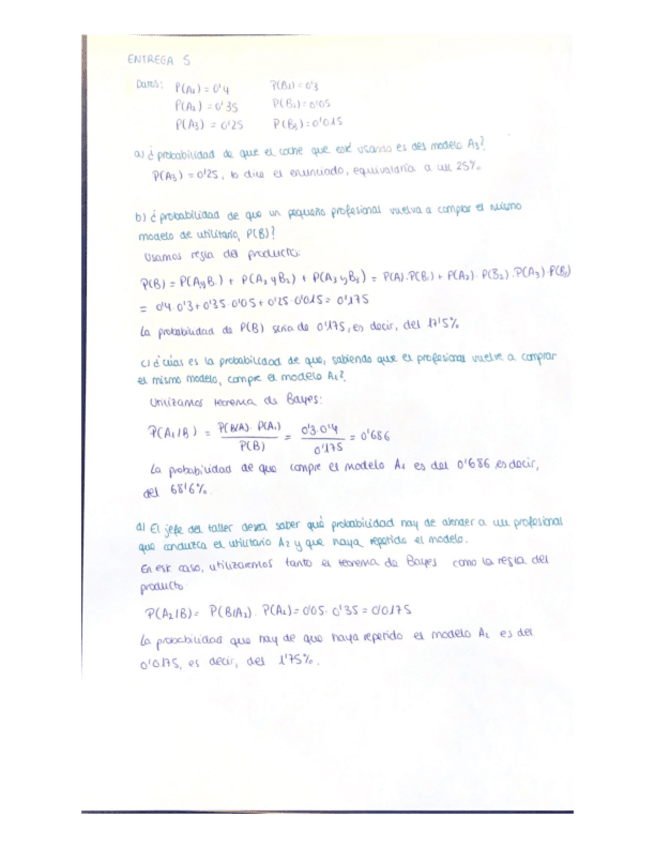 ENTREGA 5
Datos: P(A₁) = 0'4 P(B₁) = 0'3
P(A₂) = 0'35 P(B₂) = 0'05
P(A₃) = 0'25 P(B₃) = 0'015
a) ¿probabilidad de que el coche que esté usando es del modelo A₃?
P(A₃) = 0'25, lo dice el enunciado, equivaldría a un 25%.
b) ¿probabilidad de que un pequeño profesional vuelva a comprar el mismo
modelo de utilitario, P(B)?
Usamos regla del producto:
P(B) = P(A₁yB₁) + P(A₂yB₂) + P(A₃yB₃) = P(A)·P(B₁) + P(A₂)·P(B₂)·P(A₃)·P(B₃)
= 0'4·0'3 + 0'35·0'05 + 0'25·0'015 = 0'175
La probabilidad de P(B) sería de 0'175, es decir, del 17'5%
c) ¿Cuál es la probabilidad de que, sabiendo que el profesional vuelve a comprar
el mismo modelo, compre el modelo A₁?
Utilizamos teorema de Bayes:
P(A₁/B) = P(B/A)·P(A₁) / P(B) = 0'3·0'4 / 0'175 = 0'686
La probabilidad de que compre el modelo A₁ es del 0'686 es decir,
del 68'6%.
d) El jefe del taller desea saber qué probabilidad hay de atender a un profesional
que conduzca el utilitario A₂ y que haya repetido el modelo.
En este caso, utilizaremos tanto el teorema de Bayes como la regla del
producto
P(A₂/B) = P(B/A₂)·P(A₂) = 0'05·0'35 = 0'0175
La probabilidad que hay de que haya repetido el modelo A₂ es del
0'0175, es decir, del 1'75%.